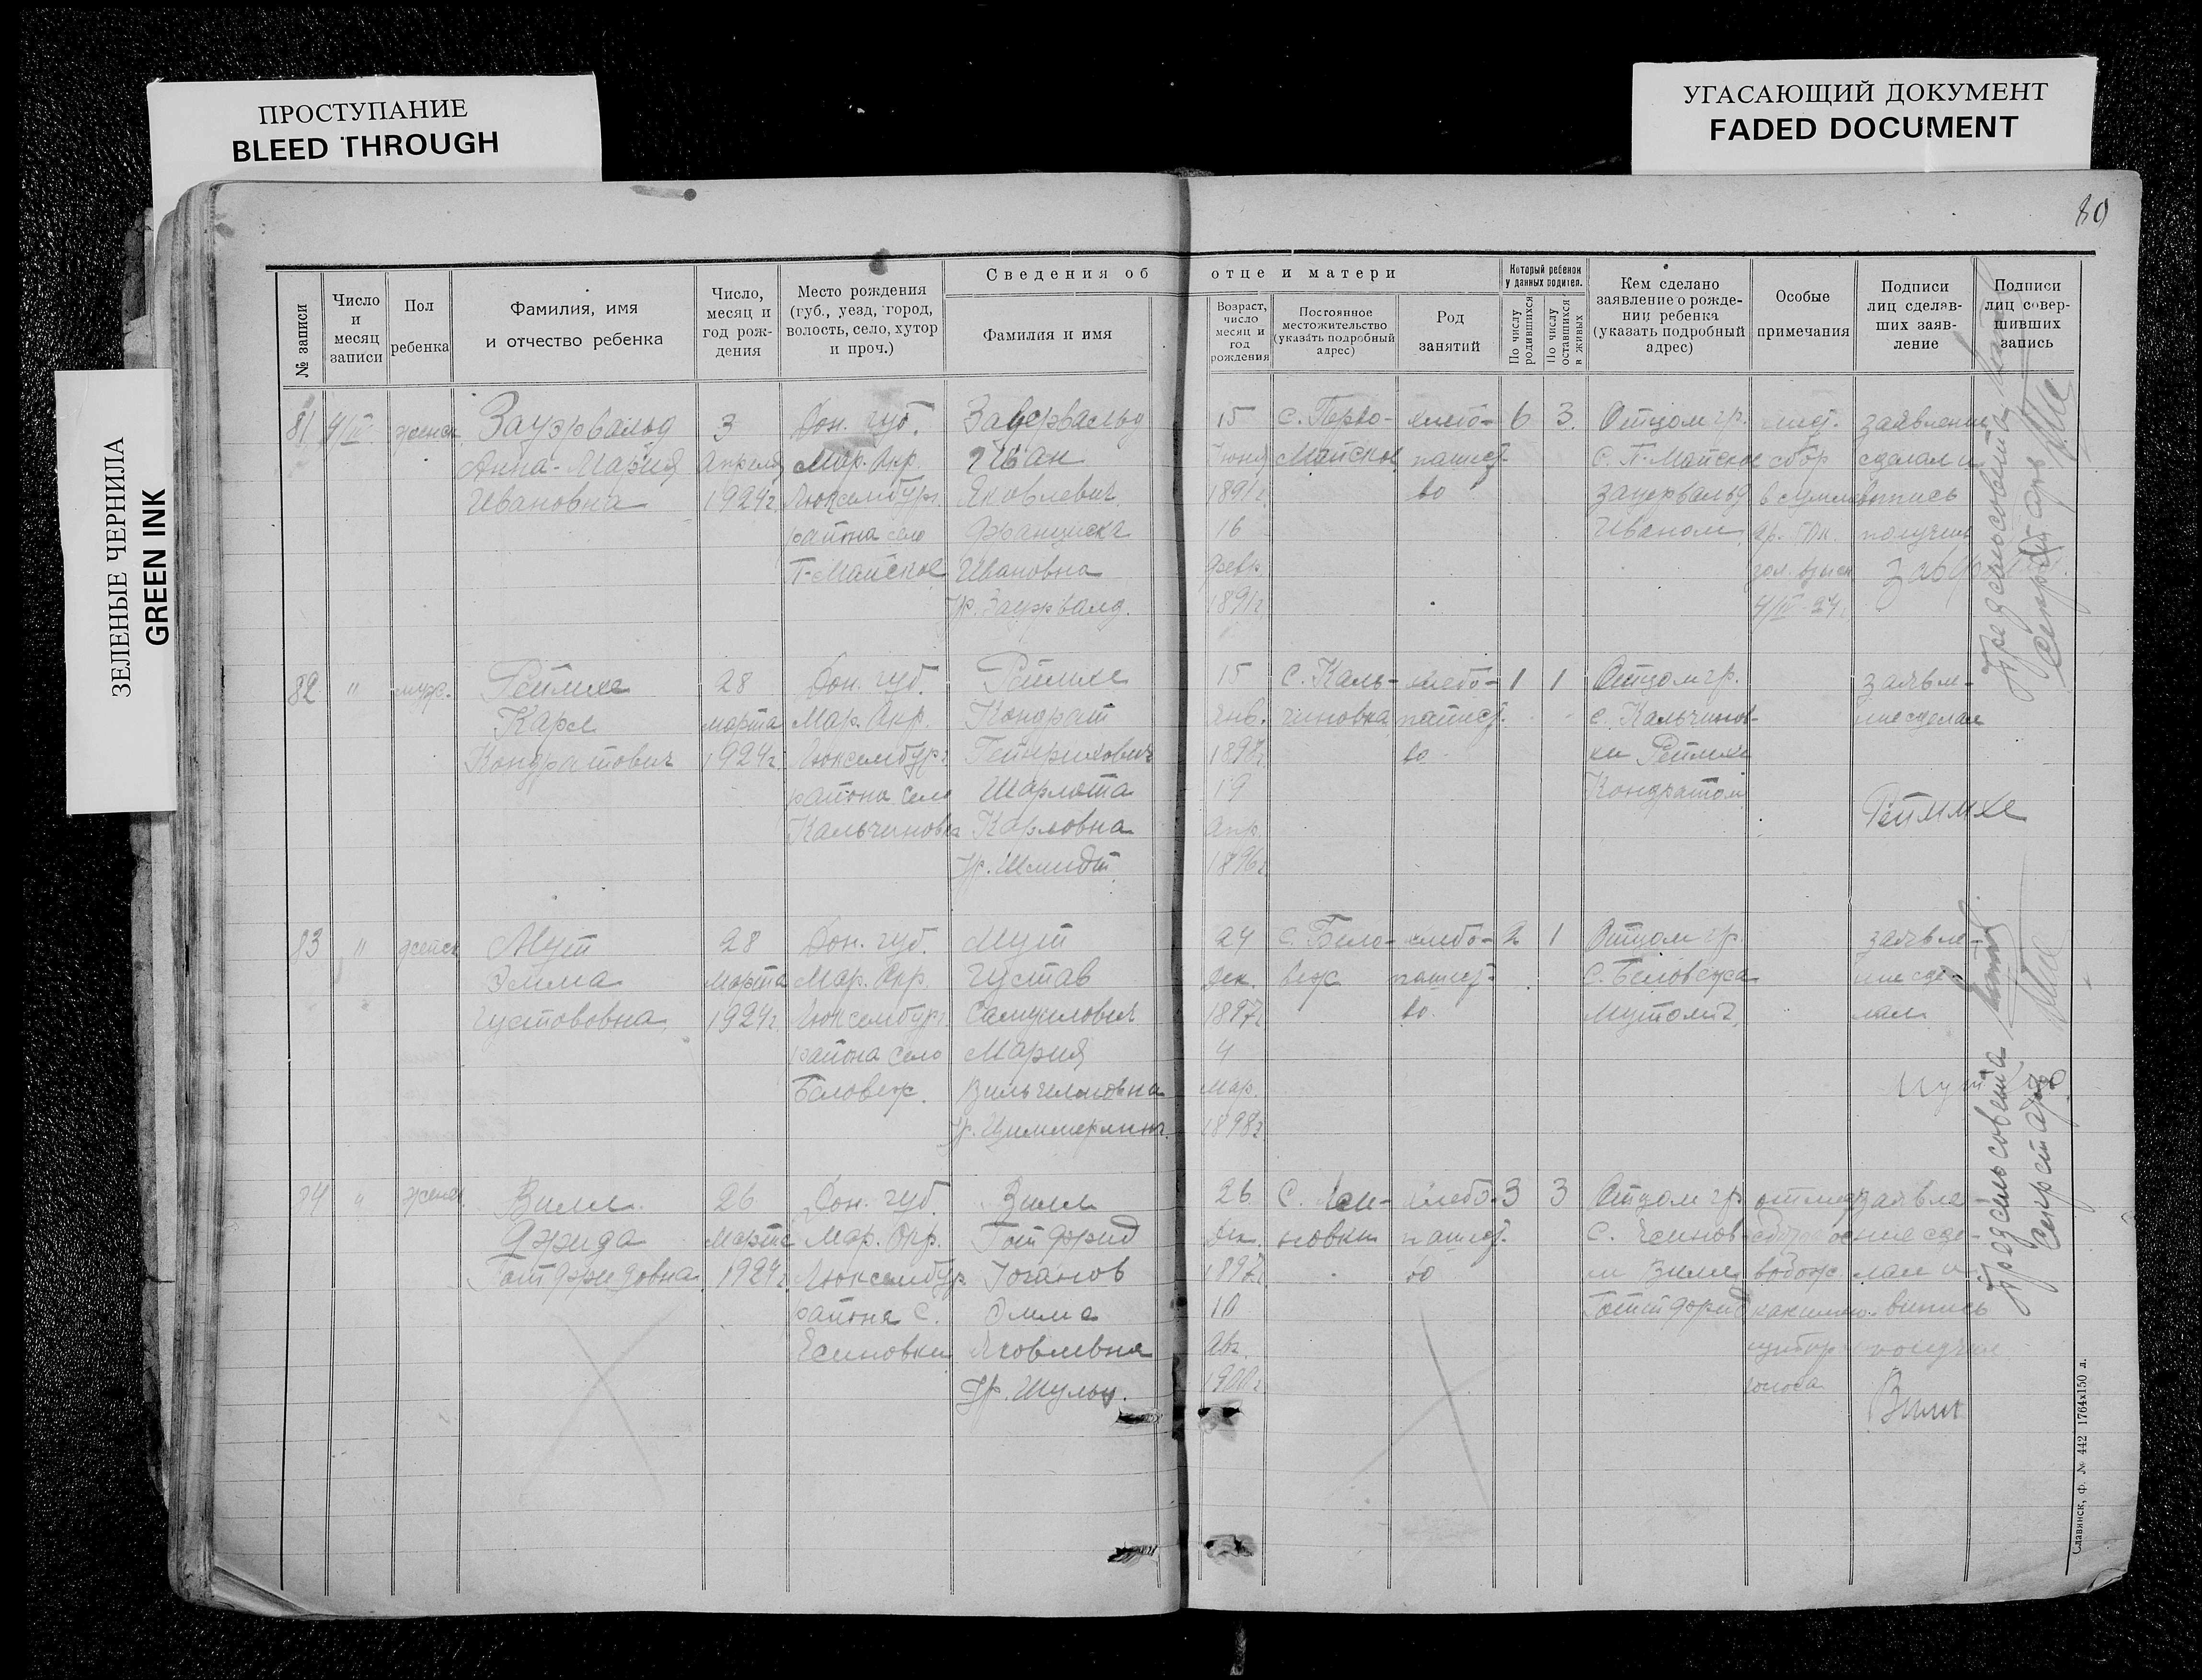 ПРОСТУПАНИЕ
BLEED THROUGH
УГАСАЮЩИЙ ДОКУМЕНТ
FADED DOCUMENT
ЗЕЛЕНЫЕ ЧЕРНИЛА
GREEN INK
80
Сведения об отце и матери
№ записи
Число и месяц записи
Пол ребенка
Фамилия, имя и отчество ребенка
Число, месяц и год рождения
Место рождения (губ., уезд, город, волость, село, хутор и проч.)
Фамилия и имя
Возраст, число месяц и год рождения
Постоянное местожительство (указать подробный адрес)
Род занятий
Который ребенок у данных родител.
По числу родившихся
По числу оставшихся в живых
Кем сделано заявление о рождении ребенка (указать подробный адрес)
Особые примечания
Подписи лиц сделавших заявление
Подписи лиц совершивших запись
81 4/IV женск.
Зауэрвальд
Анна-Мария
Ивановна
3
Апреля
1924г.
Дон. губ.
Мар. Окр.
Люксембург.
района село
П-Майское
Зауервальд
Иван
Яковлевич
Франциска
Ивановна
Ур. Зауэрвалд.
15
Июня
1891г.
16
февр.
1891г.
с. Перво-
Майское
хлебо-
пашест-
во
6 3.
Отцом гр.
С. П-Майское
Зауервальд
Иваном
сбор
заявление
сделал и
получил
4/IV-24
82 " муж.
Реймхе
Карл
Кондратович
28
марта
1924г.
Дон. губ.
Мар. Окр.
Люксембург
района село
Кальчиновка
Реймхе
Кондрат
Гейнрихович
Шарлота
Карловна
Ур. Шмидт
15
Янв.
1898г.
19
Апр.
1896г.
С. Каль-
чиновка
хлебо-
пашест-
во
1 1
Отцом гр.
с. Кальчинов-
ки Реймхе
Кондратом
заявле-
ние сделал
Реймхе
83 " женск
Мут
Эмма
Густововна
28
Марта
1924г.
Дон. губ.
Мар. Окр.
Люксембург.
района село
Беловеж.
Мут
Густав
Самуилович
Мария
Вильгелмовна
Ур. Циммерман.
24
Дек.
1897г
4
Мар.
1898г
С. Бело-
веж
хлебо-
пашест-
во
2 1
Отцом гр.
С. Беловежа
Мутом Г.
заявле-
ние сде-
лал
Мут
84 " женск.
Вилл
Фрида
Готфридовна
26
Марта
1924г.
Дон. губ.
Мар. Окр.
Люксембур.
района С.
Есиновки
Вилл
Готфрид
Иоганов
Эмма
Яковлевна
Ур. Шульц.
26
Дек.
1897г
10
Авг.
1900г
С. Еси-
новки
хлебо-
пашест-
во
3 3
Отцом гр.
С. Есинов-
ки Вилл
Готтфрид
заявле-
ние сде-
лал и
выпись
получил
Вилл
Предсельсовета
Секретарь
Предсельсовета
Секретарь
Славянск, ф. № 442 1764х150 л.